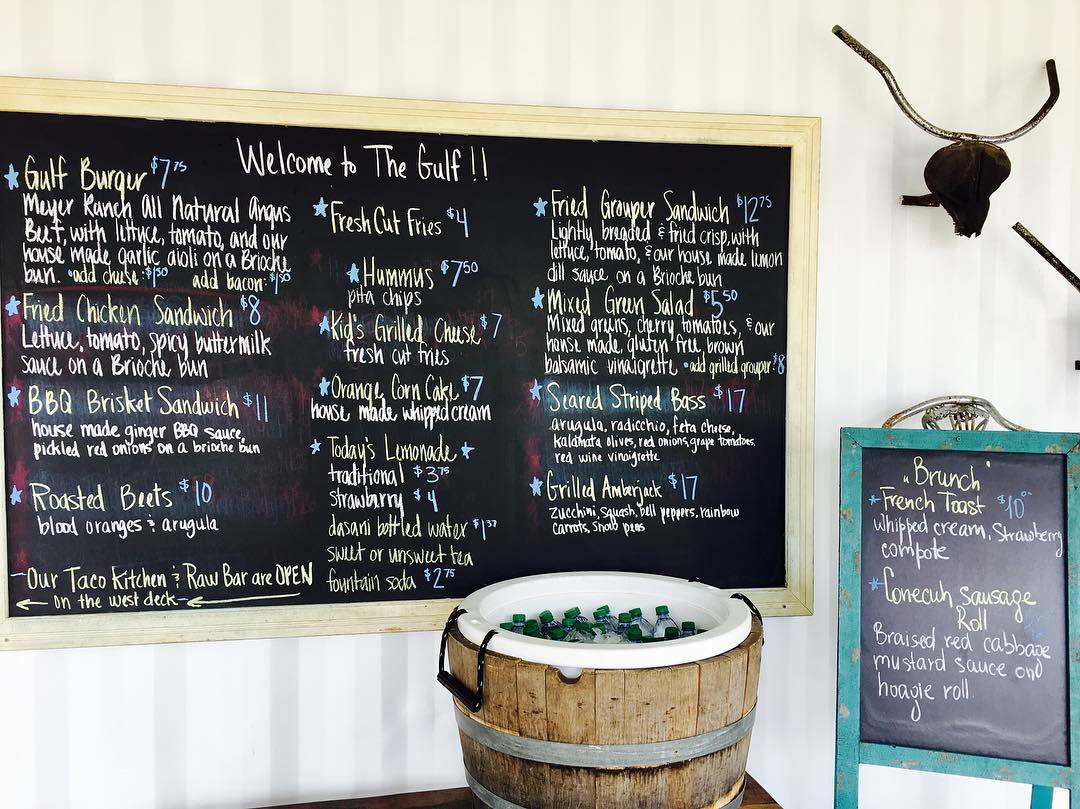 Welcome to The Gulf !!
Gulf Burger $7 75
Meyer Ranch All Natural Angus
Beef, with lettuce, tomato, and our
house made garlic aioli on a Brioche
bun. •add cheese: $1 50 add bacon: $1 50
Fried Chicken Sandwich $8
Lettuce, tomato, spicy buttermilk
sauce on a Brioche bun
BBQ Brisket Sandwich $11
house made ginger BBQ sauce,
pickled red onions on a brioche bun
Roasted Beets $10
blood oranges & arugula
Our Taco Kitchen & Raw Bar are OPEN
on the west deck
Fresh Cut Fries $4
Hummus $7 50
pita chips
Kid's Grilled Cheese $7
fresh cut fries
Orange Corn Cake $7
house made whipped cream
Today's Lemonade
traditional $3 75
strawberry $4
dasani bottled water $1 37
sweet or unsweet tea
fountain soda $2 75
Fried Grouper Sandwich $12 75
Lightly breaded & fried crisp, with
lettuce, tomato, & our house made lemon
dill sauce on a Brioche bun
Mixed Green Salad $5 50
Mixed greens, cherry tomatoes, & our
house made, gluten free brown
balsamic vinaigrette •add grilled grouper: $8
Seared Striped Bass $17
arugula, radicchio, feta cheese,
kalamata olives, red onions, grape tomatoes.
red wine vinaigrette
Grilled Amberjack $17
zucchini, squash, bell peppers, rainbow
carrots, snow peas
"Brunch"
French Toast $10
whipped cream, Strawberry
compote
Conecuh Sausage
Roll
Braised red cabbage
mustard sauce on
hoagie roll.